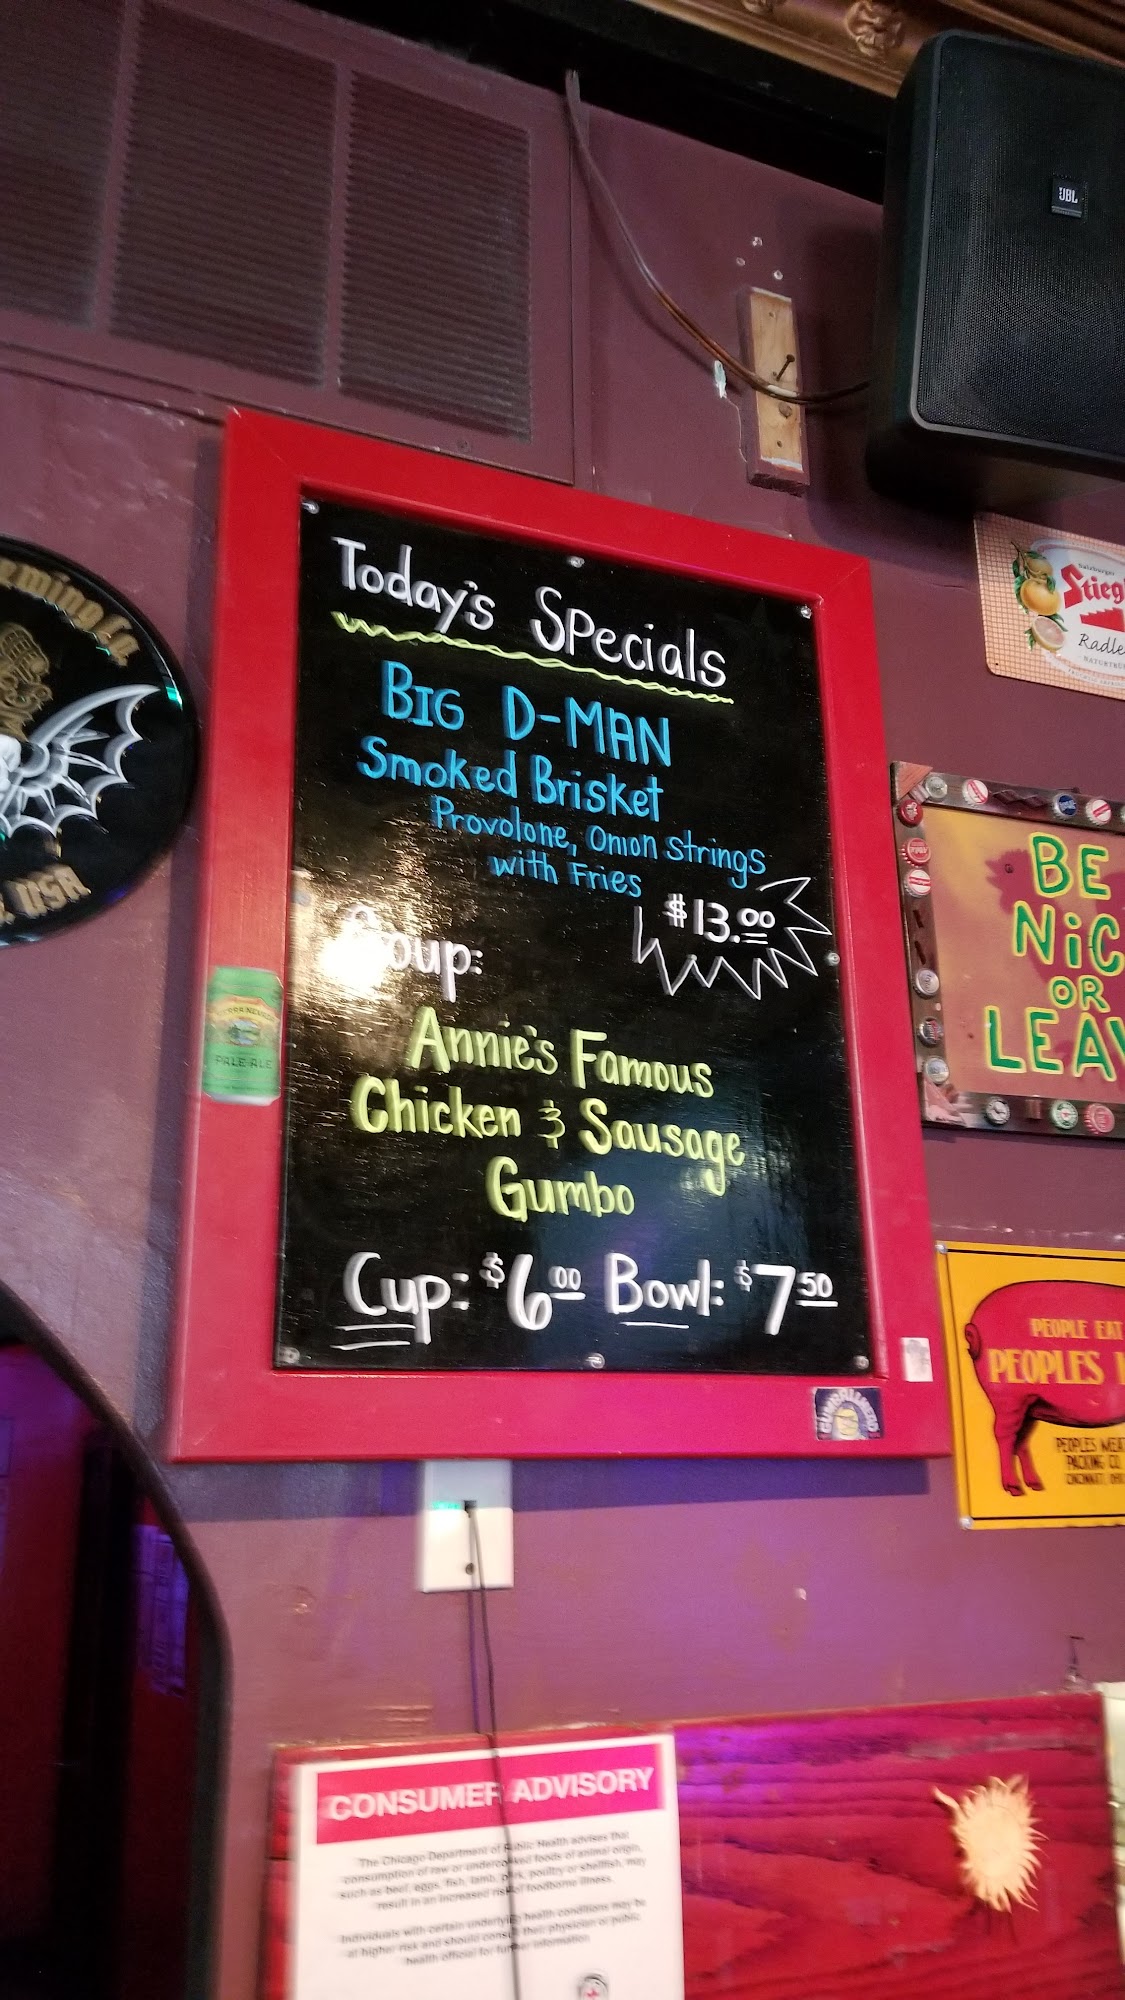 JBL
Today's Specials
BIG D-MAN
Smoked Brisket
Provolone, Onion Strings
with Fries
$13.00
Soup:
Annie's Famous
Chicken & Sausage
Gumbo
Cup: $6.00 Bowl: $7.50
PALE ALE
USA
Salzburger
Radle
BE
NiC
OR
LEAV
PEOPLE EAT
PEOPLES
PEOPLES MEAT
PACKING CO.
CONSUMER ADVISORY
The Chicago Department of Public Health advises that
consumption of raw or undercooked foods of animal origin,
such as beef, eggs, fish, lamb, pork, poultry or shellfish, may
result in an increased risk of foodborne illness.
Individuals with certain underlying health conditions may be
at higher risk and should consult their physician or public
health official for further information.